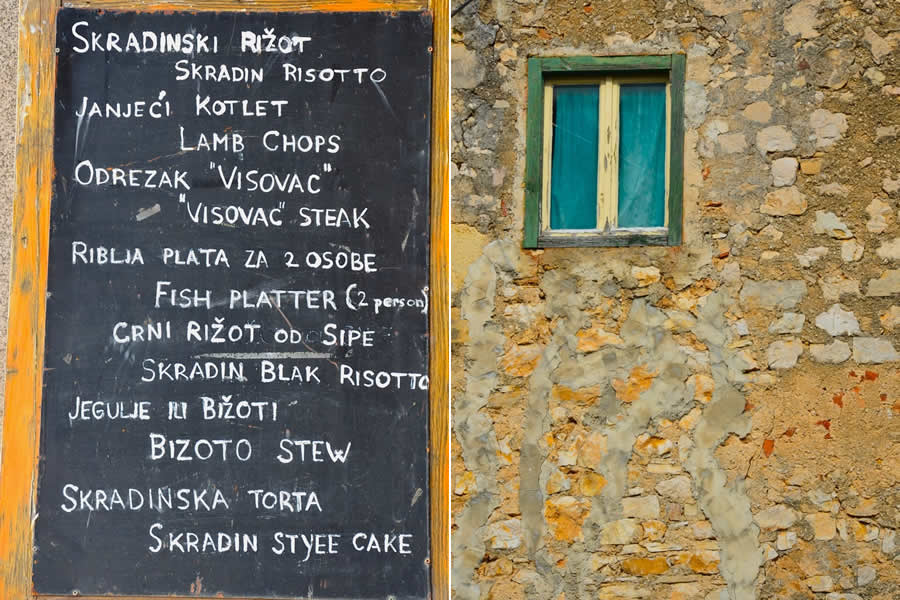 SKRADINSKI RIŽOT
SKRADIN RISOTTO
JANJEĆI KOTLET
LAMB CHOPS
ODREZAK "VISOVAC"
"VISOVAC" STEAK
RIBLJA PLATA ZA 2 OSOBE
FISH PLATTER (2 person)
CRNI RIŽOT OD SIPE
SKRADIN BLAK RISOTTO
JEGULJE ILI BIŽOTI
BIZOTO STEW
SKRADINSKA TORTA
SKRADIN STYEE CAKE